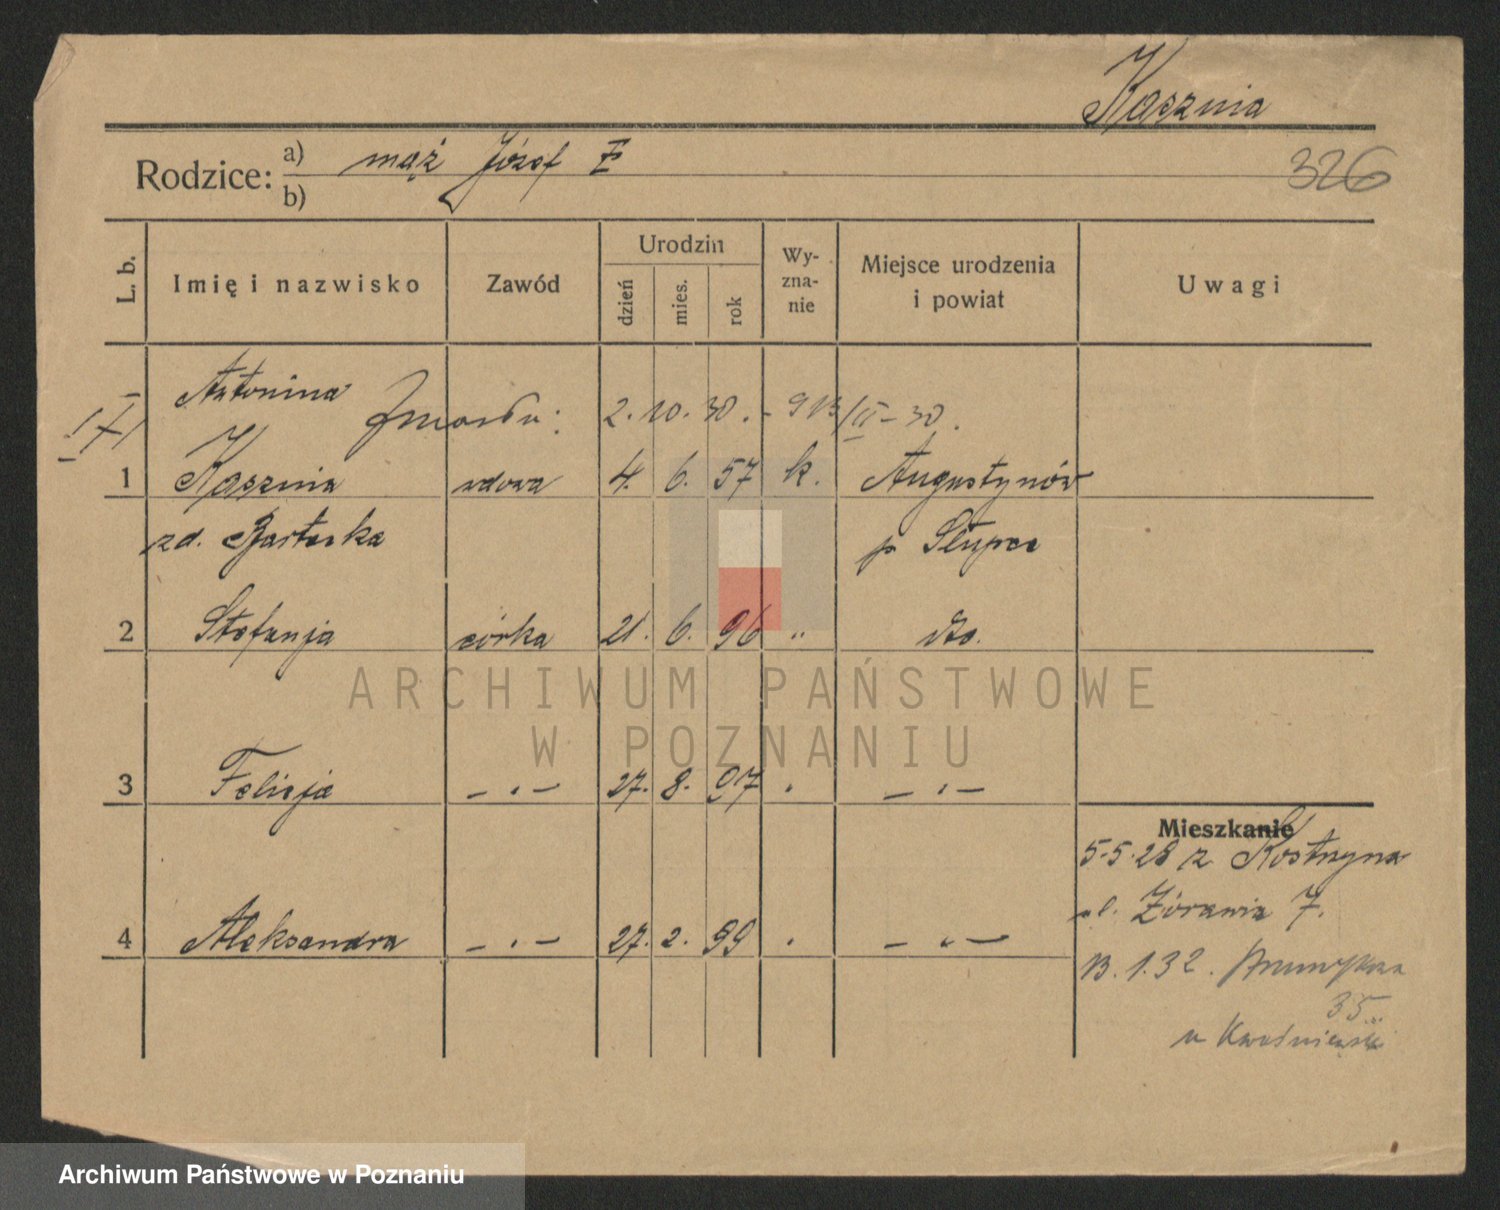 Kasznia
Rodzice: a) mąż Józef
b)
326
L. b. Imię i nazwisko Zawód Urodzin dzień mies. rok Wyznanie Miejsce urodzenia i powiat Uwagi
Antonina
zmarła: 2. 10. 30. - 913/II - 30.
1 Kasznia wdowa 4. 6. 57 k. Augustynów
zd. Bartecka p. Słupca
2 Stefanja córka 21. 6. 96 " dto.
ARCHIWUM PAŃSTWOWE
W POZNANIU
3 Felicja - " - 27. 8. 97 " - " -
Mieszkanie
5-5-28 z Kostrzyna
ul. Żórawia 7.
4 Aleksandra - " - 27. 2. 99 " - " -
13. 1. 32.
35
u
Archiwum Państwowe w Poznaniu